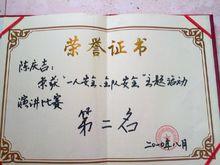 荣誉证书
陈庆吉：
荣获“一人安全、全队安全”主题活动
演讲比赛
第二名
二〇一〇年八月